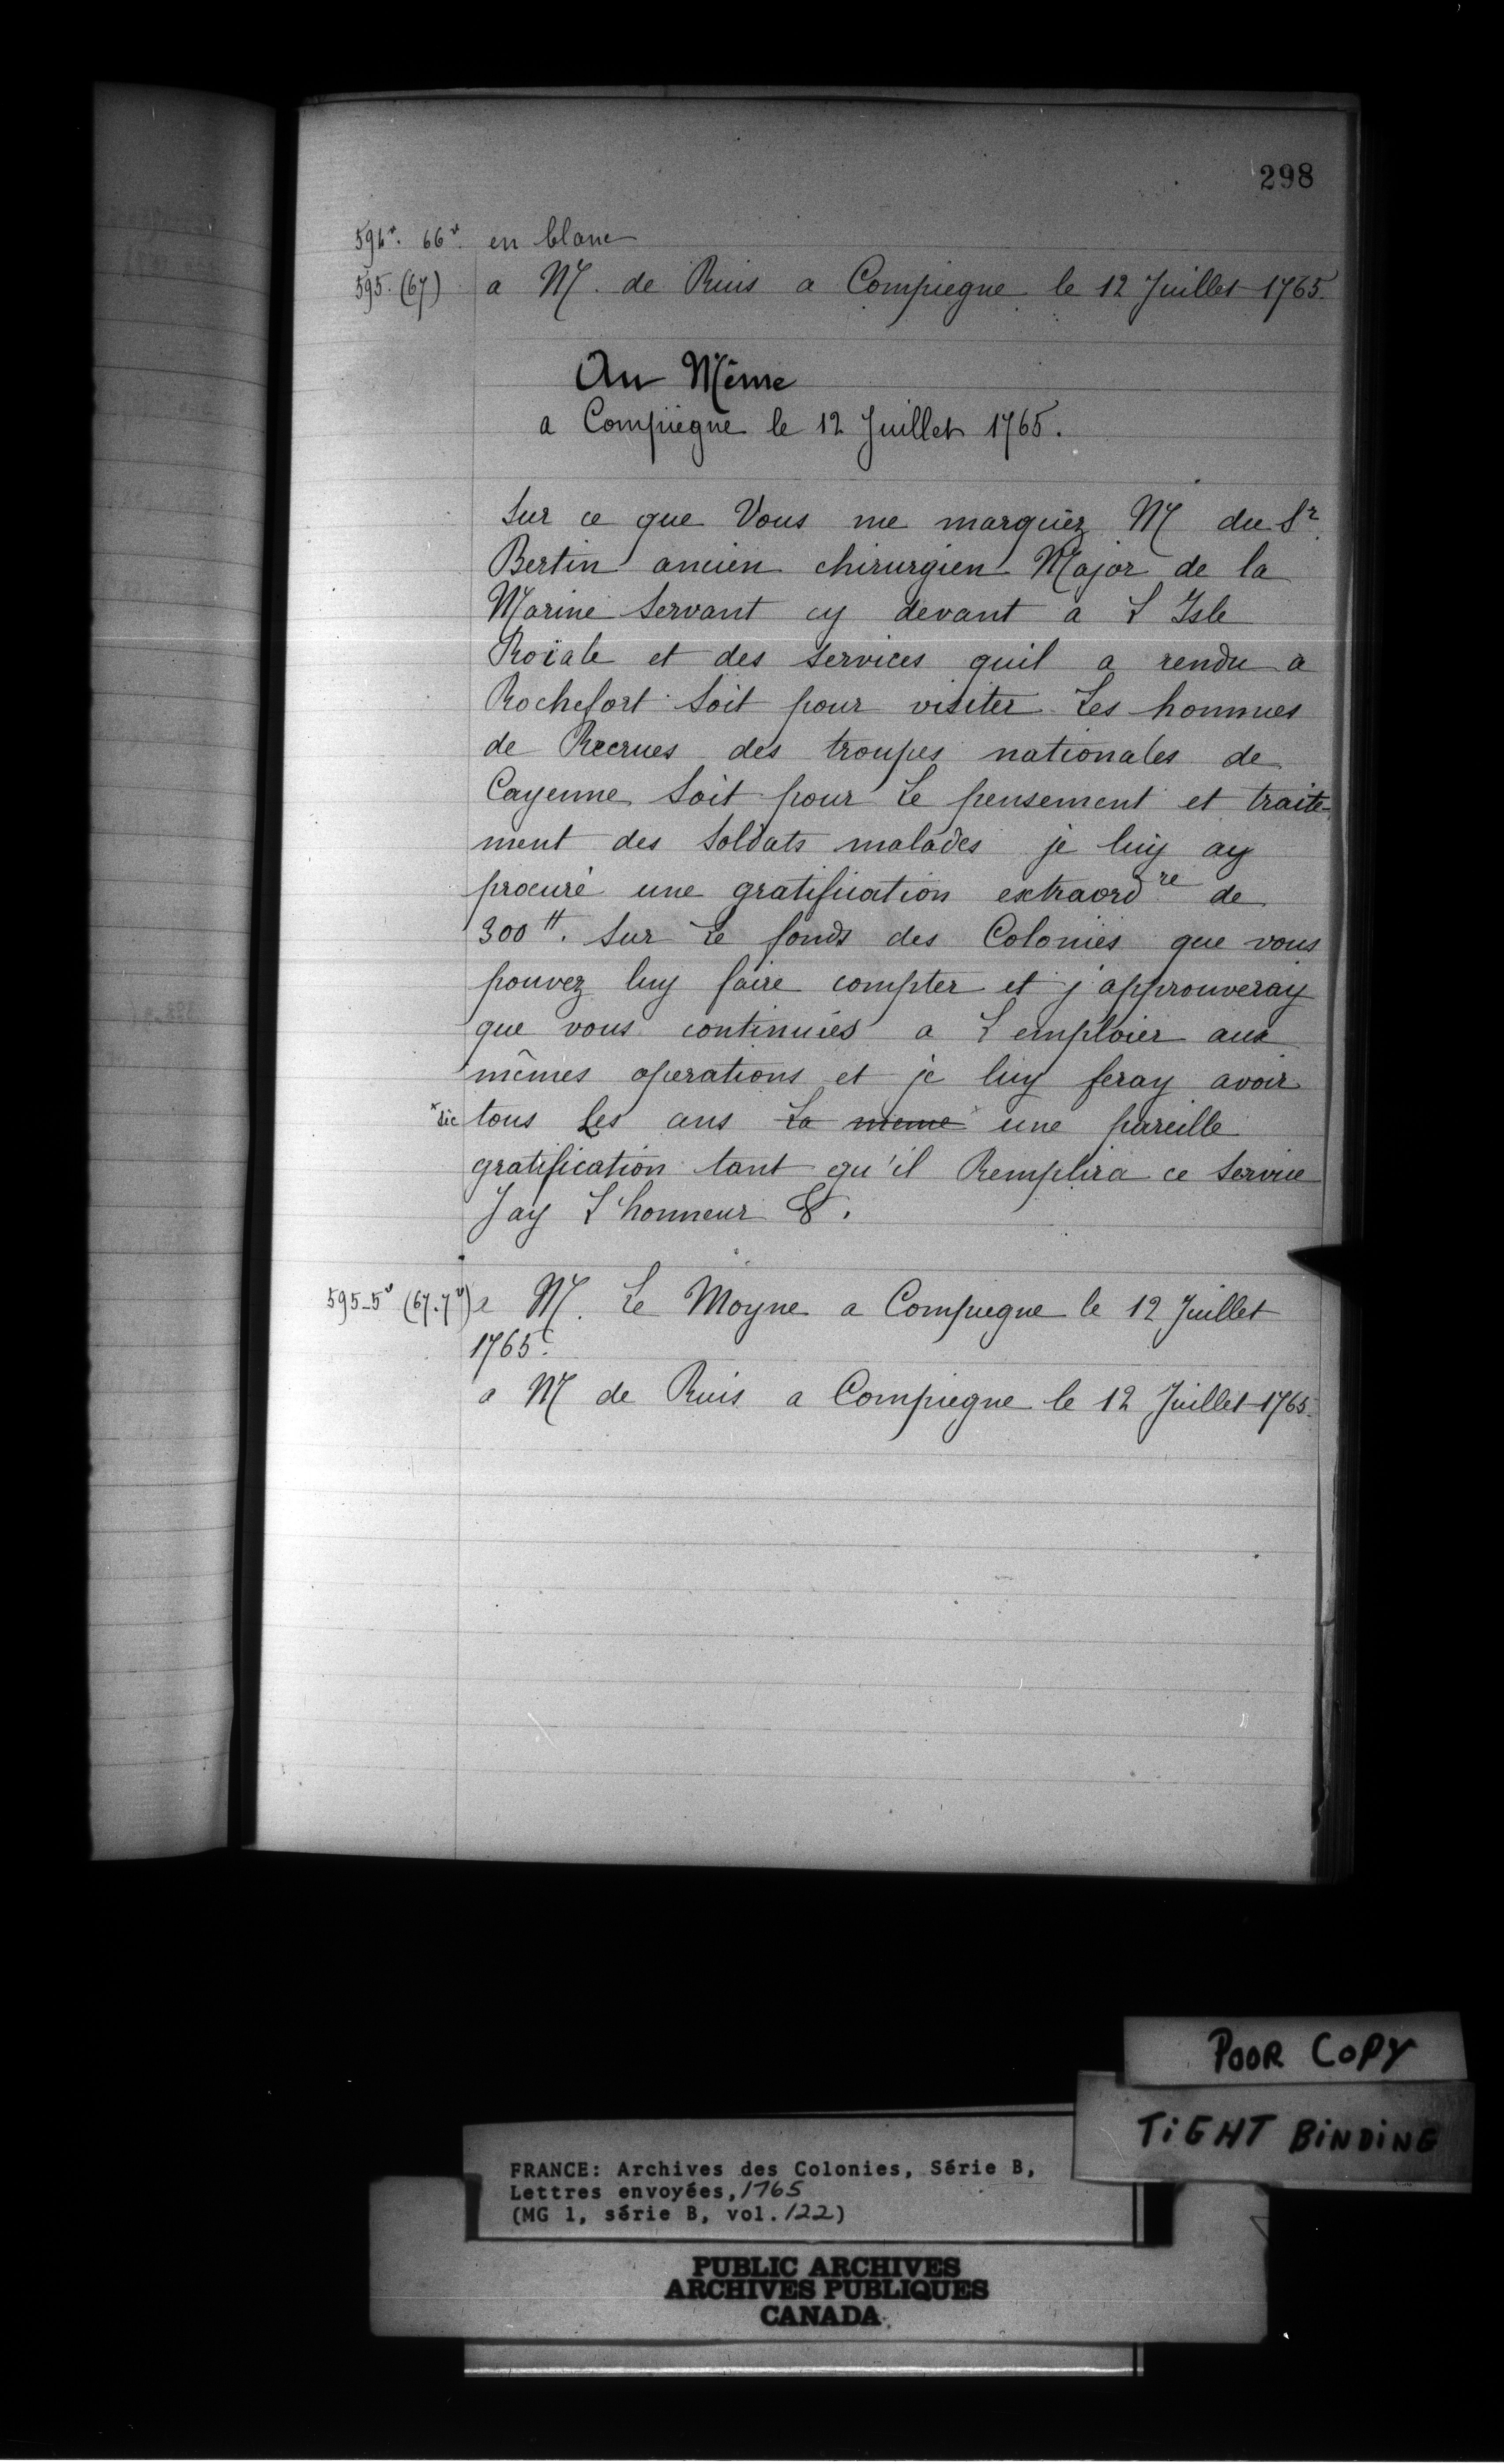 298
594v. 66v. en blanc
595. (67) a M. de Ruis a Compiegne le 12 Juillet 1765.
Au Même
a Compiegne le 12 Juillet 1765.
Sur ce que Vous me marquéz M du Sr.
Bertin ancien chirurgien Major de la
Marine Servant cy devant a L Isle
Roiale et des services quil a rendu a
Rochefort Soit pour visiter Les hommes
de Recrues des troupes nationales de
Cayenne Soit pour Le pensement et traite-
ment des Soldats malades je luy ay
procuré une gratification extraordre de
300 tt. Sur Le fonds des Colonies que vous
pouvez luy faire compter et j'approuveray
que vous continuiés a L emploier aux
mêmes operations et je luy feray avoir
*sic tous Les ans La meme * une pareille
gratification tant qu'il Remplira ce Service
Jay L'honneur &.
595-5v (67.7v) a M. Le Moyne a Compiegne le 12 Juillet
1765.
a M de Ruis a Compiegne le 12 Juillet 1765.
POOR COPY
TIGHT BINDING
FRANCE: Archives des Colonies, Série B,
Lettres envoyées, 1765
(MG 1, série B, vol. 122)
PUBLIC ARCHIVES
ARCHIVES PUBLIQUES
CANADA